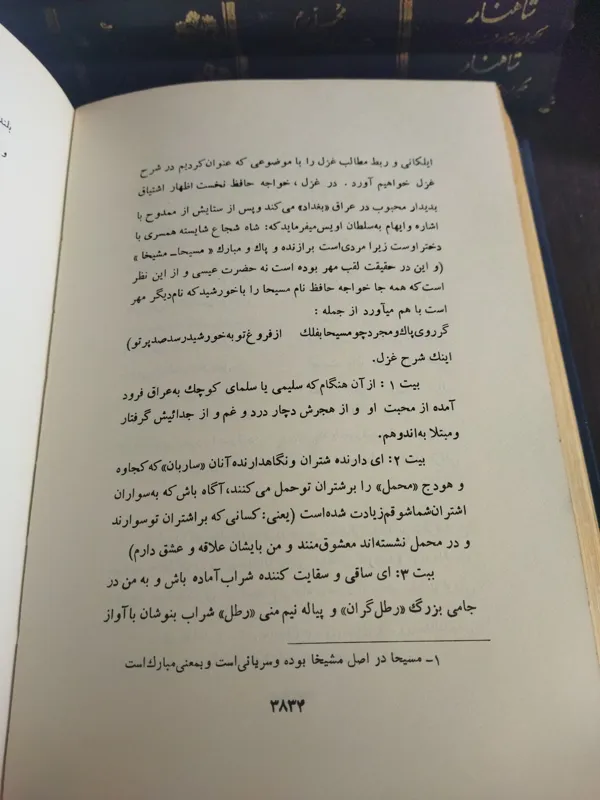 شاهنامه
شاهنامه
بلند
و
ایلکانی و ربط مطالب غزل را با موضوعی که عنوان کردیم در شرح
غزل خواهیم آورد . در غزل ، خواجه حافظ نخست اظهار اشتیاق
بدیدار محبوب در عراق «بغداد» می‌کند و پس از ستایش از ممدوح با
اشاره وایهام به‌سلطان اویس میفرماید که: شاه شجاع شایسته همسری با
دختر اوست زیرا مردی‌است برازنده و پاك و مبارك « مسیحا ـ مشیخا »
(و این در حقیقت لقب مهر بوده است نه حضرت عیسی و از این نظر
است‌که همه جا خواجه حافظ نام مسیحا را باخورشید که نام‌دیگر مهر
است با هم میآورد از جمله :
گر روی پاك و مجرد چو مسیحا بفلك از فروغ تو به خورشید رسد صد پرتو)
اینك شرح غزل.
بیت ۱ : از آن هنگام که سلیمی یا سلمای کوچك به‌عراق فرود
آمده از محبت او و از هجرش دچار درد و غم و از جدائیش گرفتار
و مبتلا به‌اندوهم.
بیت ۲: ای دارنده شتران و نگاهدارنده آنان «ساربان» که کجاوه
و هودج «محمل» را برشتران تو حمل می‌کنند، آگاه باش که به‌سواران
اشتران شما شوقم زیادت شده‌است (یعنی: کسانی که بر اشتران تو سوارند
و در محمل نشسته‌اند معشوق منند و من بایشان علاقه و عشق دارم)
بیت ۳: ای ساقی و سقایت کننده شراب آماده باش و به من در
جامی بزرگ «رطل گران» و پیاله نیم منی «رطل» شراب بنوشان با آواز
۱ـ مسیحا در اصل مشیخا بوده و سریانی است و بمعنی مبارك است
۳۸۳۴